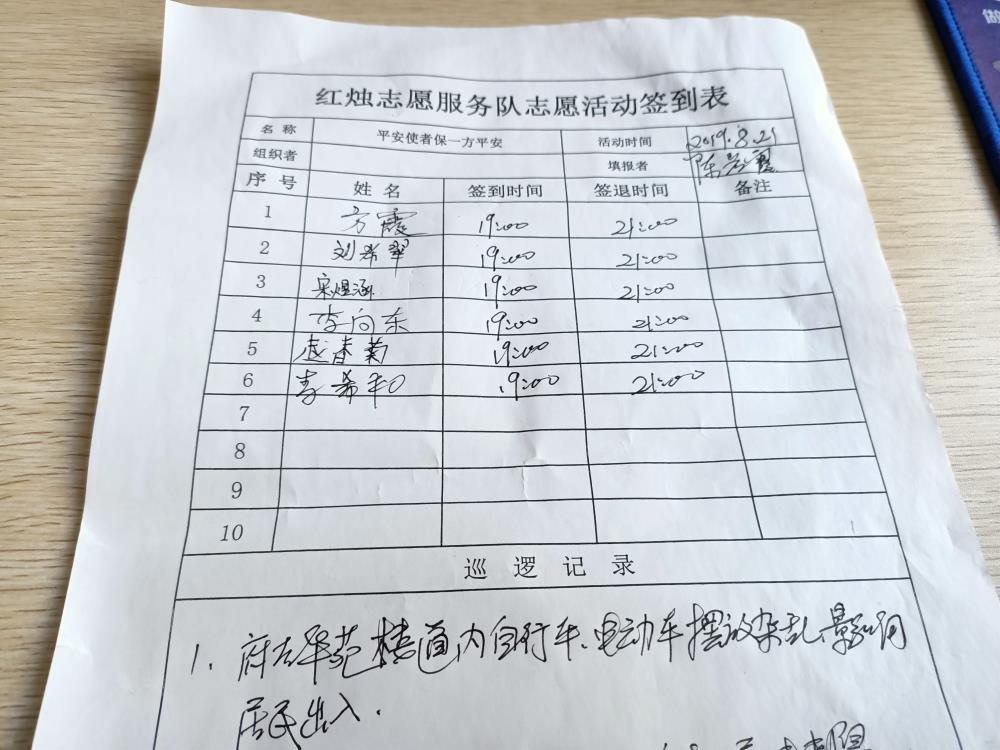 红烛志愿服务队志愿活动签到表
名称 平安使者保一方平安 活动时间 2019.8.21
组织者 填报者
序号 姓名 签到时间 签退时间 备注
1 方霞 19:00 21:00
2 刘希翠 19:00 21:00
3 宋煜涵 19:00 21:00
4 李向东 19:00 21:00
5 赵春菊 19:00 21:00
6 李希和 19:00 21:00
7
8
9
10
巡逻记录
1. 府左华苑楼道内自行车、电动车摆放杂乱、影响
居民出入.